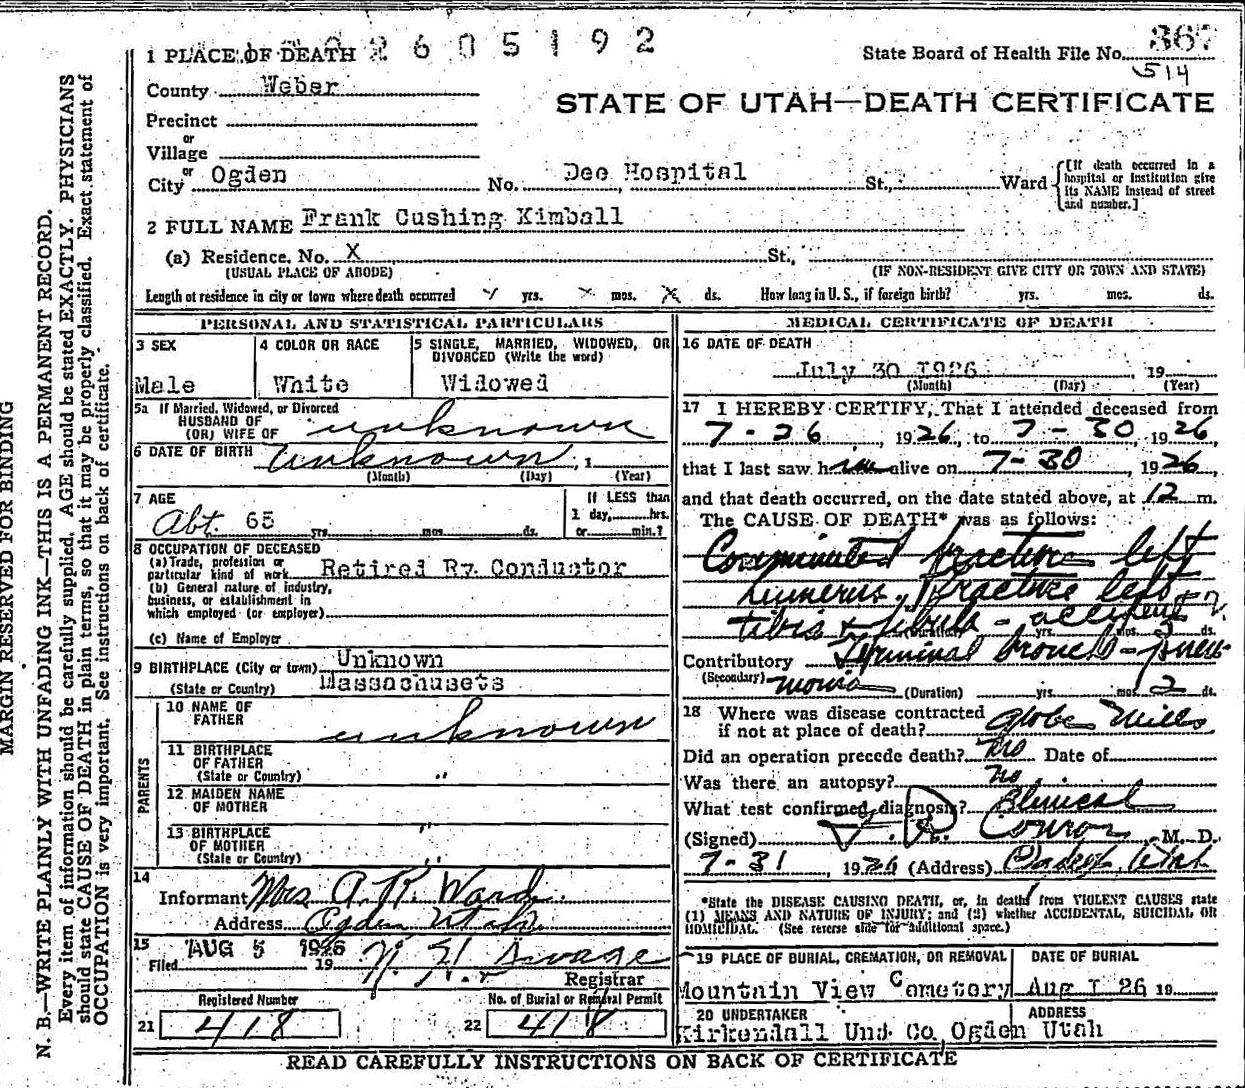 2605192
1 PLACE OF DEATH
State Board of Health File No. 367
514
County Weber
STATE OF UTAH—DEATH CERTIFICATE
Precinct
or
Village
or
City Ogden No. Dee Hospital St., Ward
[If death occurred in a hospital or institution give its NAME instead of street and number.]
2 FULL NAME Frank Cushing Kimball
(a) Residence. No. X St.,
(USUAL PLACE OF ABODE) (IF NON-RESIDENT GIVE CITY OR TOWN AND STATE)
Length of residence in city or town where death occurred yrs. x mos. x ds. How long in U. S., if foreign birth? yrs. mos. ds.
PERSONAL AND STATISTICAL PARTICULARS
3 SEX 4 COLOR OR RACE 5 SINGLE, MARRIED, WIDOWED, OR
DIVORCED (Write the word)
Male White Widowed
5a If Married, Widowed, or Divorced
HUSBAND OF
(OR) WIFE OF unknown
6 DATE OF BIRTH unknown, 1
(Month) (Day) (Year)
7 AGE If LESS than
1 day, hrs.
Abt. 65 yrs. mos. ds. or min.?
8 OCCUPATION OF DECEASED
(a) Trade, profession or
particular kind of work Retired Ry. Conductor
(b) General nature of industry,
business, or establishment in
which employed (or employer)
(c) Name of Employer
9 BIRTHPLACE (City or town) Unknown
(State or Country) Massachusets
PARENTS
10 NAME OF
FATHER unknown
11 BIRTHPLACE
OF FATHER
(State or Country) "
12 MAIDEN NAME
OF MOTHER
"
13 BIRTHPLACE
OF MOTHER
(State or Country) "
14
Informant Mrs A. R. Ward
Address Ogden Utah.
15 AUG 5 1926
Filed 19
Registrar
Registered Number No. of Burial or Removal Permit
21 418 22 418
MEDICAL CERTIFICATE OF DEATH
16 DATE OF DEATH
July 30 1926 19
(Month) (Day) (Year)
17 I HEREBY CERTIFY, That I attended deceased from
7-26, 1926, to 7-30 1926
that I last saw him alive on 7-30, 1926
and that death occurred, on the date stated above, at 12 m.
The CAUSE OF DEATH* was as follows:
Comminuted fracture left
humerus, fracture left
tibia & fibula - accident
(Duration) yrs. mos. ds.
Contributory Terminal broncho-pneu-
(Secondary) monia (Duration) yrs. mos. 2 ds.
18 Where was disease contracted
if not at place of death? Globe Mills
Did an operation precede death? No Date of
Was there an autopsy? no.
What test confirmed diagnosis? Clinical
(Signed) Conroy M. D.
7-31 1926 (Address) Ogden, Utah
*State the DISEASE CAUSING DEATH, or, in death from VIOLENT CAUSES state
(1) MEANS AND NATURE OF INJURY; and (2) whether ACCIDENTAL, SUICIDAL OR
HOMICIDAL. (See reverse side for additional space.)
19 PLACE OF BURIAL, CREMATION, OR REMOVAL DATE OF BURIAL
Mountain View Cemetery Aug 1 26 19
20 UNDERTAKER ADDRESS
Kirkendall Und Co. Ogden Utah
READ CAREFULLY INSTRUCTIONS ON BACK OF CERTIFICATE
MARGIN RESERVED FOR BINDING
N. B.—WRITE PLAINLY WITH UNFADING INK—THIS IS A PERMANENT RECORD.
Every item of information should be carefully supplied. AGE should be stated EXACTLY. PHYSICIANS
should state CAUSE OF DEATH in plain terms, so that it may be properly classified. Exact statement of
OCCUPATION is very important. See instructions on back of certificate.